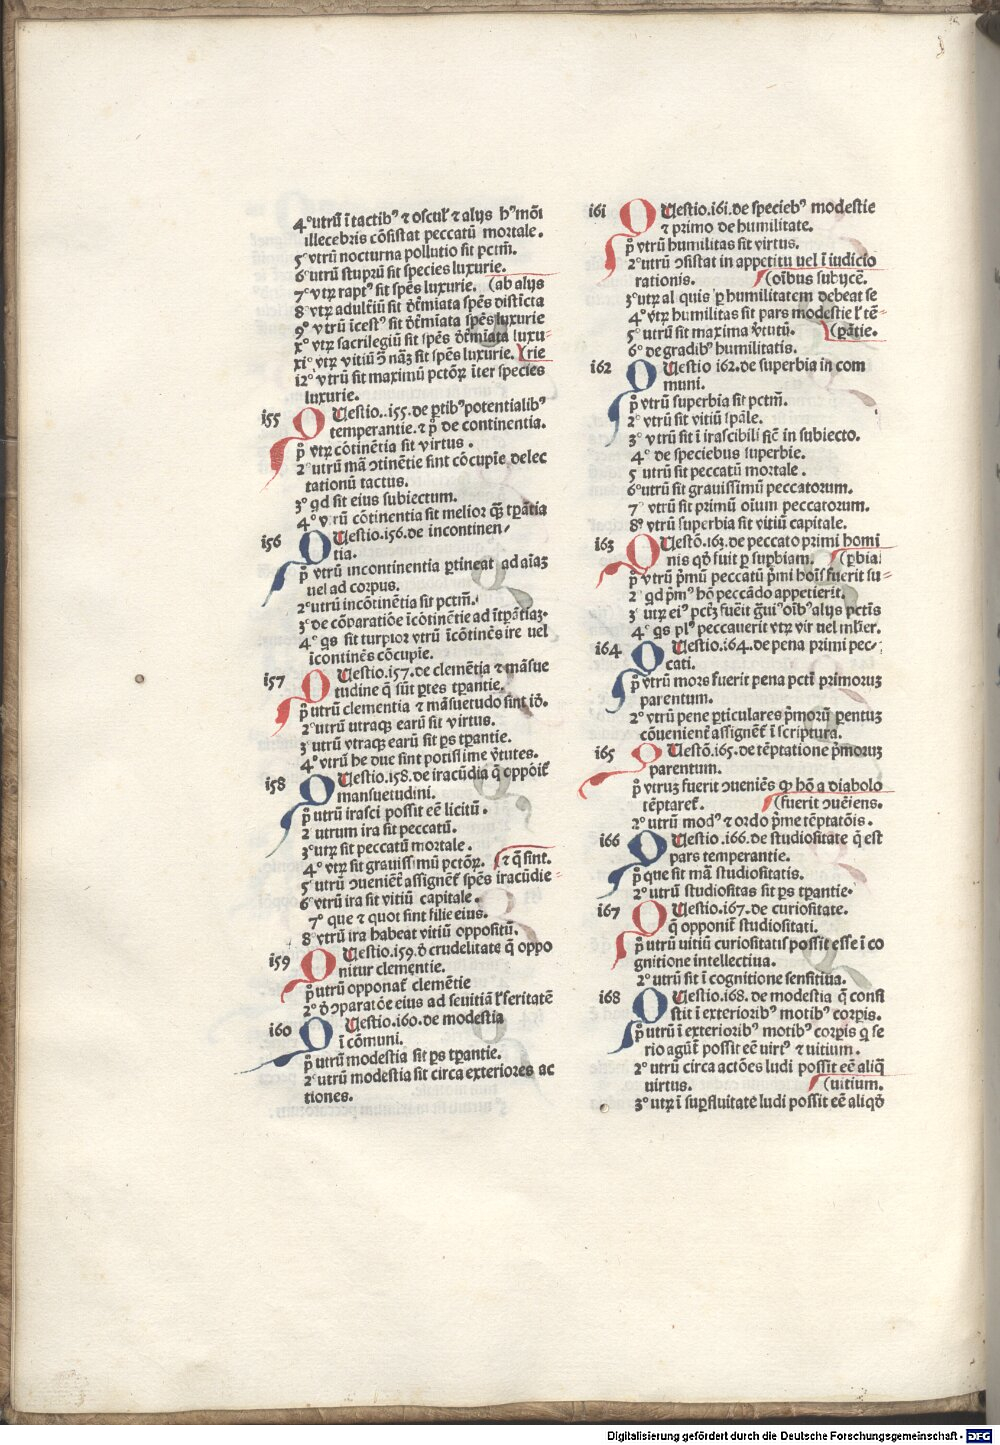 4° utrū ī tactibꝰ ⁊ oscul' ⁊ alijs hꝰmōi
illecebris cōsistat peccatū mortale.
5° vtrū nocturna pollutio sit pctm̄.
6° utrū stuprū sit species luxurie.
7° vtꝝ raptꝰ sit spēs luxurie. (ab alijs
8° vtꝝ adulteriū sit dēmiata spēs distīcta
9° vtrū īcestꝰ sit dēmiata spēs luxurie
x° vtꝝ sacrilegiū sit spēs dēmiata luxu-
xi° vtꝝ vitiū ꝯ nāꝫ sit spēs luxurie. (rie
i2° vtrū sit maximū pctōꝝ īter species
luxurie.
i55 QUestio..i55.de ꝑtibꝰ potentialibꝰ
temperantie.⁊ p̄ de continentia.
p° vtꝝ cōtinētia sit virtus.
2° utrū mā ꝯtinētie sint cōcupīe delec
tationū tactus.
3° qd sit eius subiectum.
4° vrū cōtinentia sit melior q̄ꝫ tꝑātia
i56 QUestio.i56.de incontinen-
tia.
p° vtrū incontinentia ꝑtineat ad aīaꝫ
uel ad corpus.
2° utrū incōtinētia sit pctm̄.
3° de cōparatiōe īcōtinētie ad ītꝑātiaꝫ.
4° qs sit turpior vtrū īcōtinēs ire uel
īcontinēs cōcupīe.
i57 QUestio.i57.de clemētia ⁊ māsue
tudine q̄ sūt ꝑtes tꝑantie.
p° utrū clementia ⁊ māsuetudo sint id̄.
2° utrū utraqꝫ earū sit virtus.
3° utrū vtraqꝫ earū sit ꝑs tꝑantie.
4° vtrū he due sint potissime v̄tutes.
i58 QUestio.i58.de iracūdia q̄ oppōit̄
mansuetudini.
p° utrū irasci possit eē licitū.
2° utrum ira sit peccatū.
3° utꝝ sit peccatū mortale.
4° vtꝝ sit grauissimū pctōꝝ. (⁊ q̄ sint.
5° utrū ꝯueniēt̄ assignēt̄ spēs iracūdie-
6° vtrū ira sit vitiū capitale.
7° que ⁊ quot sint filie eius.
8° vtrū ira habeat vitiū oppositū.
i59 QUestio.i59.d̄ crudelitate q̄ oppo
nitur clementie.
p° utrū opponat̄ clemētie
2° d̄ ꝯparatōe eius ad seuitiā l' feritatē
i60 QUestio.i60.de modestia
ī cōmuni.
p° utrū modestia sit ꝑs tꝑantie.
2° utrū modestia sit circa exteriores ac
tiones.
i6i QUestio.i6i.de speciebꝰ modestie
⁊ primo de humilitate.
p° vtrū humilitas sit virtus.
2° utrū ꝯsistat in appetitu uel ī iudicio
rationis. (oībus subijcē.
3° utꝝ al quis ꝑ humilitatem debeat se
4° vtꝝ humilitas sit pars modestie l' tē-
5° utrū sit maxima v̄tutū. (ꝑatie.
6° de gradibꝰ humilitatis.
i62 QUestio i62.de superbia in com
muni.
p° vtrū superbia sit pctm̄.
2° vtrū sit vitiū spāle.
3° vtrū sit ī irascibili sic̄ in subiecto.
4° de speciebus superbie.
5° utrū sit peccatū mortale.
6° utrū sit grauissimū peccatorum.
7° vtrū sit primū oīum peccatorum.
8° vtrū superbia sit vitiū capitale.
i63 QUestō.i63.de peccato primi homi
nis qd̄ fuit ꝑ suꝑbiam. (ꝑbia
p° vtrū p̄mū peccatū p̄mi hoīs fuerit su-
2° qd p̄mꝰ hō peccādo appetierit.
3° utꝝ eiꝰ pctꝫ fuēit ḡuiꝰ oībꝰ alijs pctīs
4° qs plꝰ peccauerit vtꝝ vir uel mlier.
i64 QUestio.i64.de pena primi pec-
cati.
p° vtrū mors fuerit pena pcti primoruꝫ
parentum.
2° vtrū pene ꝑticulares p̄morū ꝑentuꝫ
cōuenient̄ assignēt̄ ī scriptura.
i65 QUestō.i65.de tēptatione p̄moruꝫ
parentum.
p° vtruꝫ fuerit ꝯueniēs qꝫ hō a diabolo
tēptaret̄. (fuerit ꝯuēiens.
2° utrū modꝰ ⁊ ordo p̄me tēptatōis.
i66 QUestio.i66.de studiositate q̄ est
pars temperantie.
p° que sit mā studiositatis.
2° utrū studiositas sit ꝑs tꝑantie.
i67 QUestio.i67.de curiositate.
q̄ opponit̄ studiositati.
p° utrū uitiū curiositatis possit esse ī co
gnitione intellectiua.
2° utrū sit ī cognitione sensitiua.
i68 QUestio.i68.de modestia q̄ consi
stit ī exterioribꝰ motibꝰ corꝑis.
p° utrū ī exterioribꝰ motibꝰ corꝑis q se
rio agūt̄ possit eē uirtꝰ ⁊ uitium.
2° utrū circa actōes ludi possit eē aliq̄
uirtus. (uitium.
3° utꝝ ī suꝑfluitate ludi possit eē aliqd̄
Digitalisierung gefördert durch die Deutsche Forschungsgemeinschaft - DFG